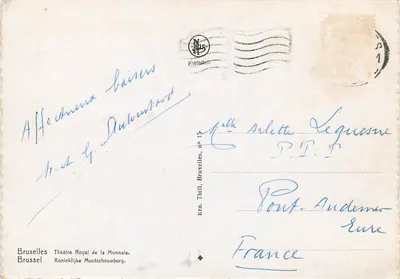 Affectueux baisers
Melle Arlette Lequesne
P.T.T
Pont-Audemer
Eure
France
Ern. Thill, Bruxelles, n° 15
Bruxelles Théâtre Royal de la Monnaie.
Brussel Koninklijke Muntschouwburg.